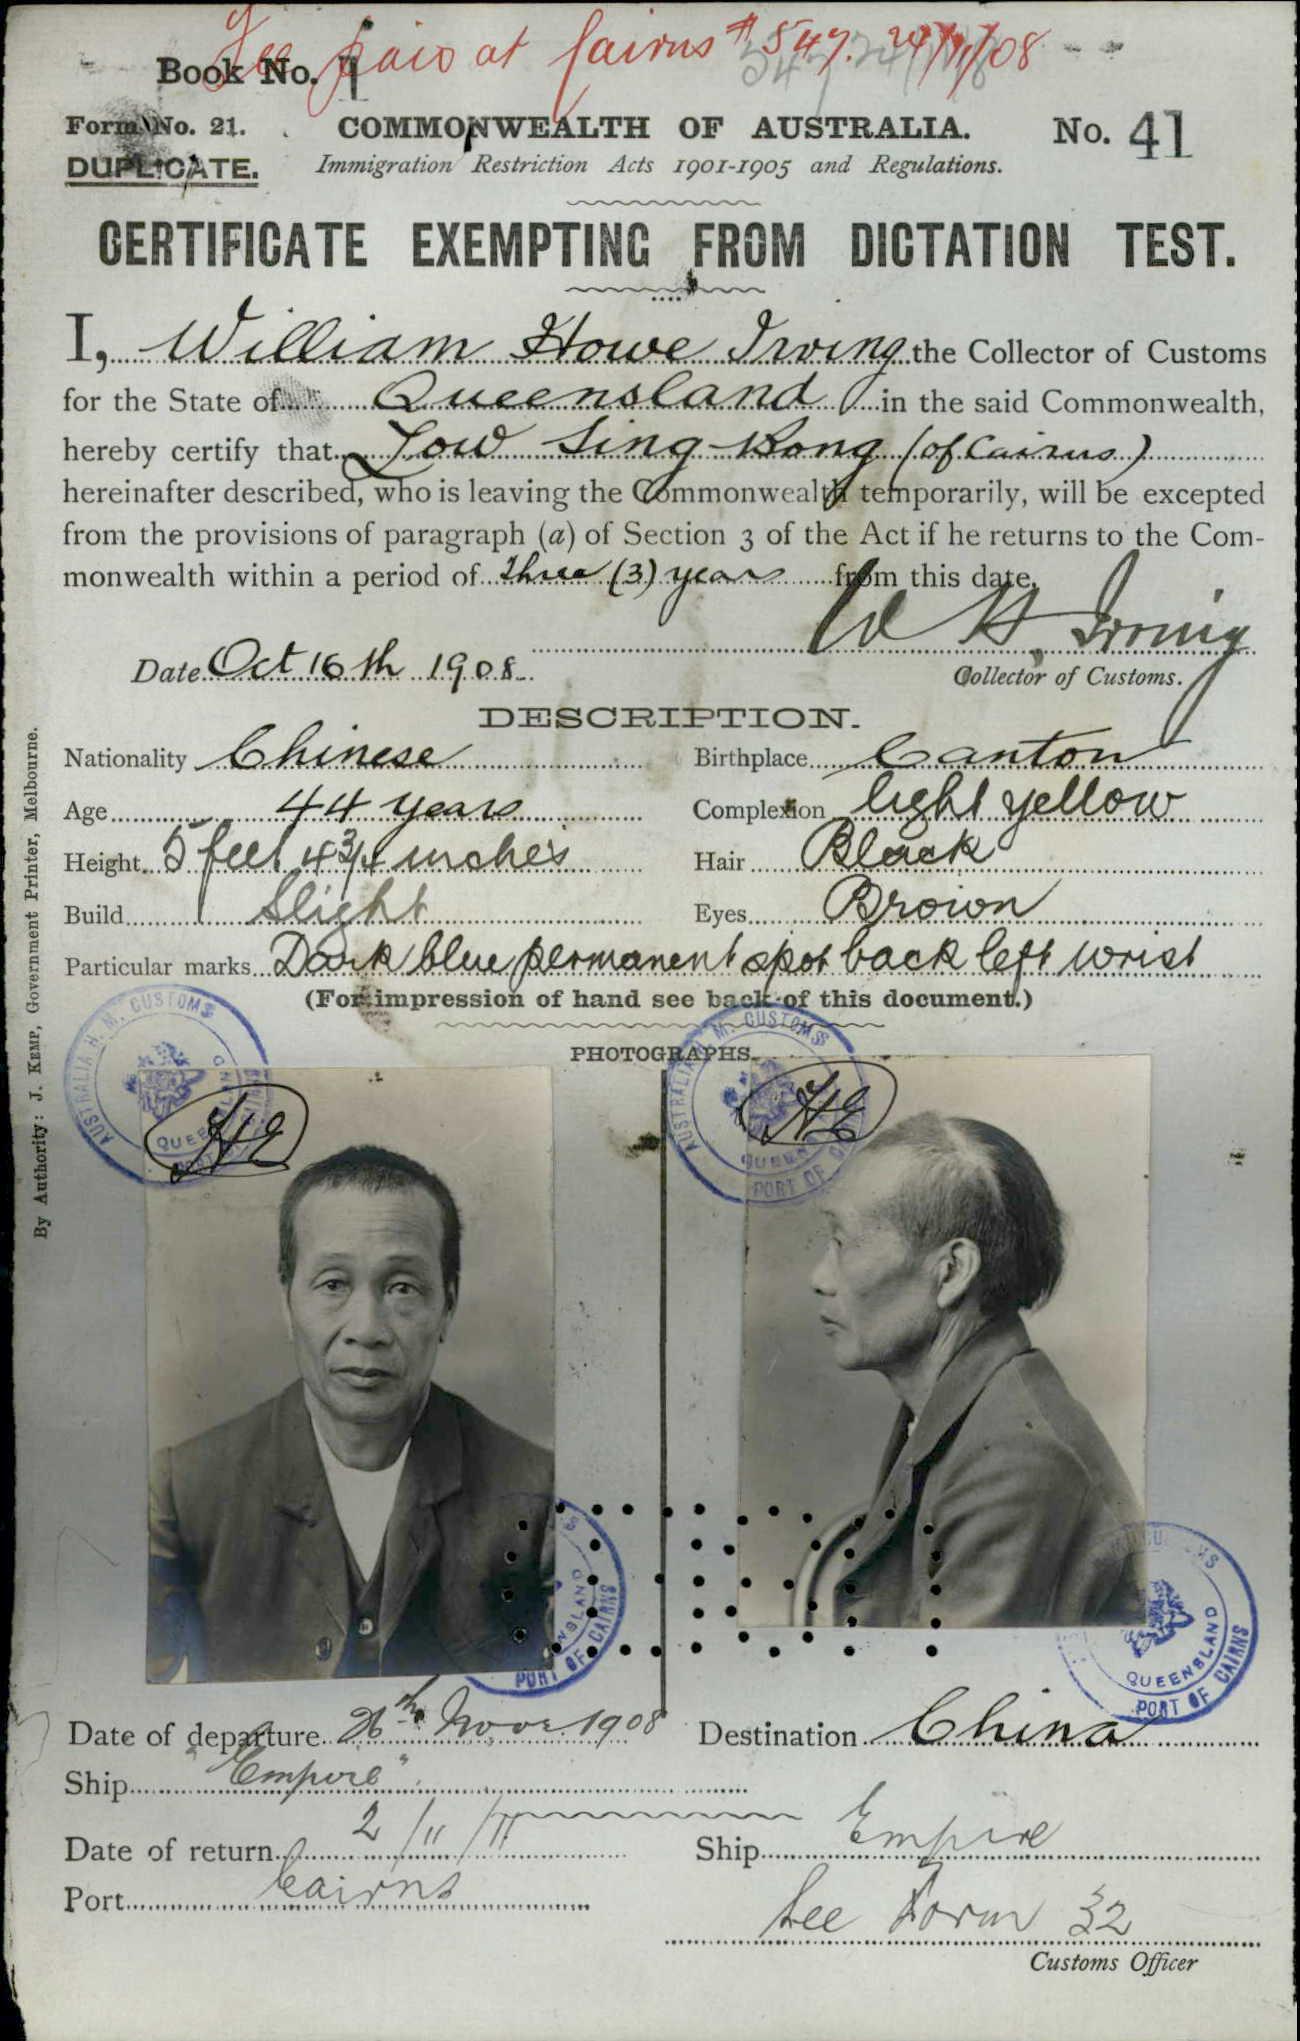 Fee paid at Cairns #547. 24/11/08
Book No. 1
Form No. 21. COMMONWEALTH OF AUSTRALIA. No. 41
DUPLICATE. Immigration Restriction Acts 1901-1905 and Regulations.
CERTIFICATE EXEMPTING FROM DICTATION TEST.
I, William Howe Irving the Collector of Customs
for the State of Queensland in the said Commonwealth,
hereby certify that Low Sing Kong (of Cairns)
hereinafter described, who is leaving the Commonwealth temporarily, will be excepted
from the provisions of paragraph (a) of Section 3 of the Act if he returns to the Com-
monwealth within a period of three (3) years from this date.
W H Irving
Date Oct 16th 1908 Collector of Customs.
DESCRIPTION.
Nationality Chinese Birthplace Canton
Age 44 years Complexion light yellow
Height 5 feet 4 3/4 inches Hair Black
Build Slight Eyes Brown
Particular marks Dark blue permanent spot back left wrist
(For impression of hand see back of this document.)
PHOTOGRAPHS.
AUSTRALIA H. M. CUSTOMS QUEENSLAND
HE
AUSTRALIA H. M. CUSTOMS QUEENSLAND PORT OF CAIRNS
HE
QUEENSLAND PORT OF CAIRNS
CUSTOMS QUEENSLAND PORT OF CAIRNS
Date of departure 26th Novr 1908 Destination China
Ship "Empire"
Date of return 2/11/11 Ship Empire
Port Cairns
See Form 32
Customs Officer
By Authority: J. KEMP, Government Printer, Melbourne.